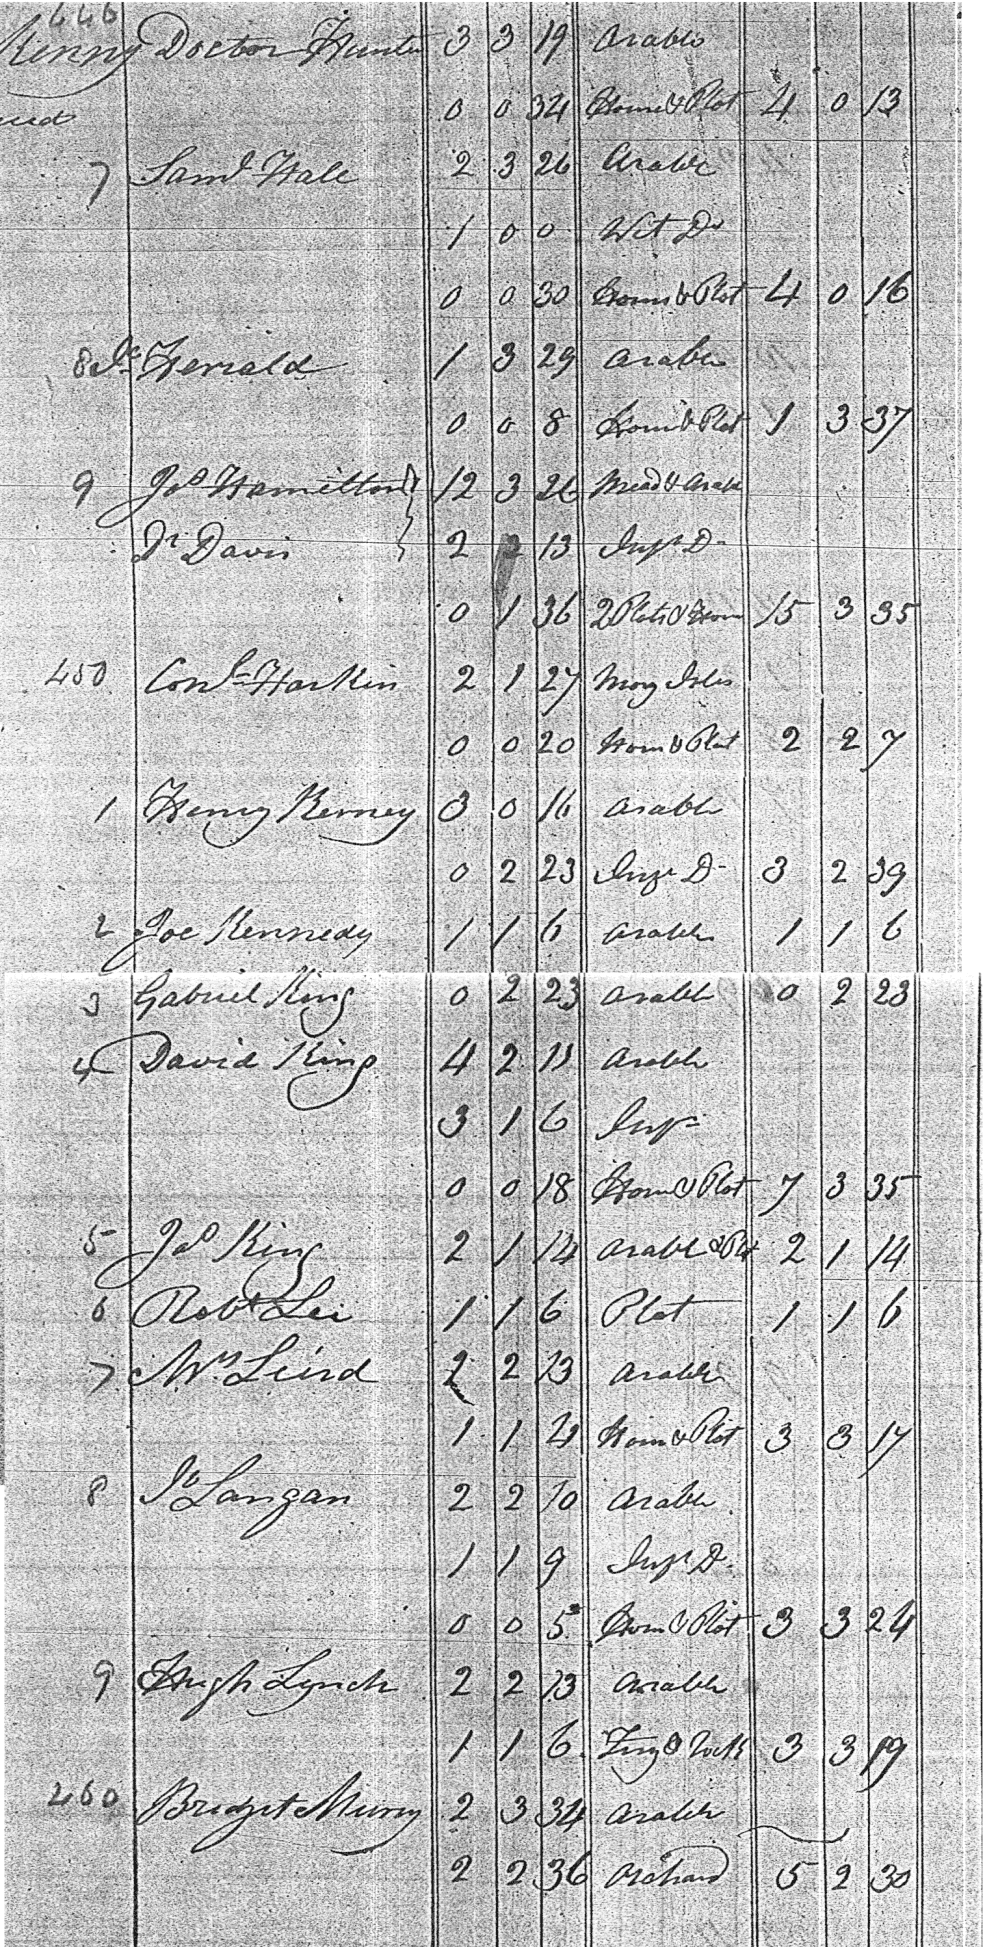 646
Kenny Doctor Hunter 3 3 19 Arable
0 0 34 Home & Plot 4 0 13
7 Saml Hale 2 3 26 Arable
1 0 0 Wet Do
0 0 30 Home & Plot 4 0 16
8 Herrald 1 3 29 Arable
0 0 8 Home & Plot 1 3 37
9 Jas Hamilton 12 3 26 Mead & Arable
Dr Davis 2 2 13 Infr D
0 1 36 2 Plots & Home 15 3 35
450 Conl Harkin 2 1 27
0 0 20 Home & Plot 2 2 7
1 Henry Kerney 3 0 16 Arable
0 2 23 Infr D 3 2 39
2 Joe Kennedy 1 1 6 Arable 1 1 6
3 Gabriel King 0 2 23 Arable 0 2 23
4 David King 4 2 11 Arable
3 1 6 Infr
0 0 18 Home & Plot 7 3 35
5 Jas King 2 1 14 Arable & Plt 2 1 14
6 Robt Lee 1 1 6 Plot 1 1 6
7 Mrs Leird 2 2 13 Arable
1 1 4 Home & Plot 3 3 17
8 Jo Langan 2 2 10 Arable
1 1 9 Infr D
0 0 5 Home & Plot 3 3 24
9 Hugh Lynch 2 2 13 Arable
1 1 6 3 3 19
460 Bridget Murry 2 3 34 Arable
2 2 36 Orchard 5 2 30